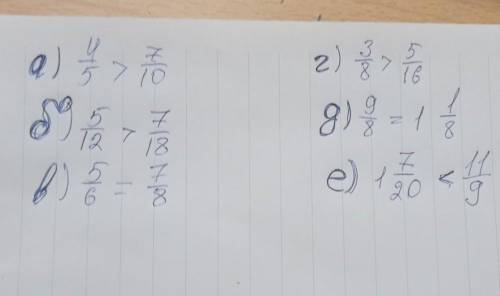 а) 4/5 > 7/10
б) 5/12 > 7/18
в) 5/6 = 7/8
г) 3/8 > 5/16
д) 9/8 = 1 1/8
е) 1 7/20 < 11/9